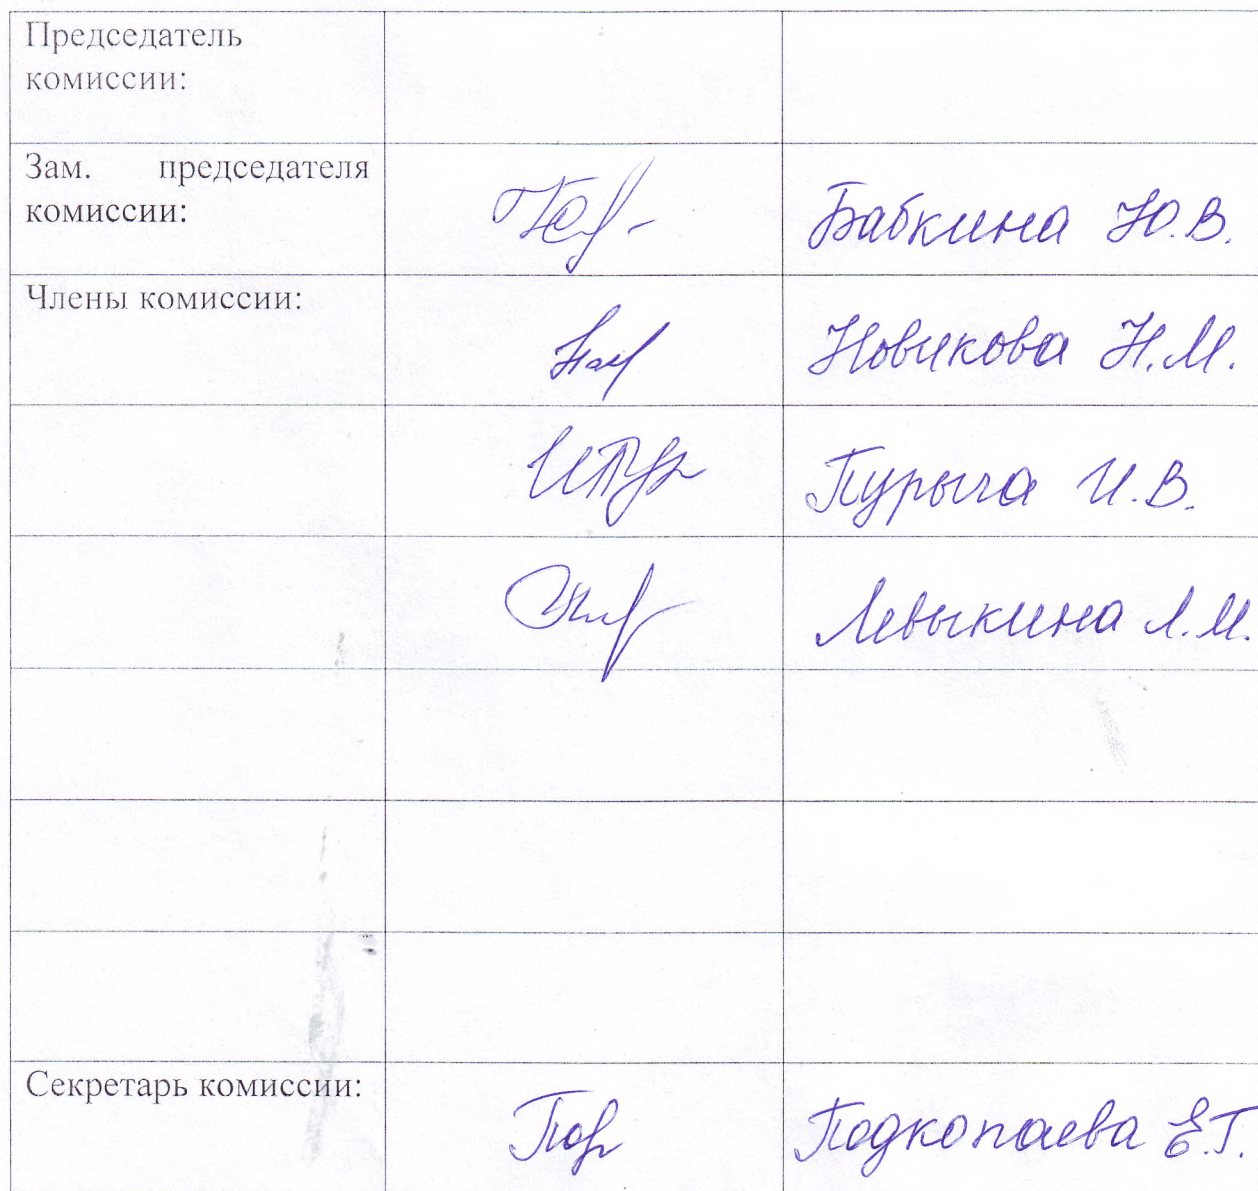 Председатель
комиссии:
Зам. председателя
комиссии:
Бабкина Ю.В.
Члены комиссии:
Новикова Н.М.
Пурыга И.В.
Левыкина Л.М.
Секретарь комиссии:
Подкопаева Е.Г.